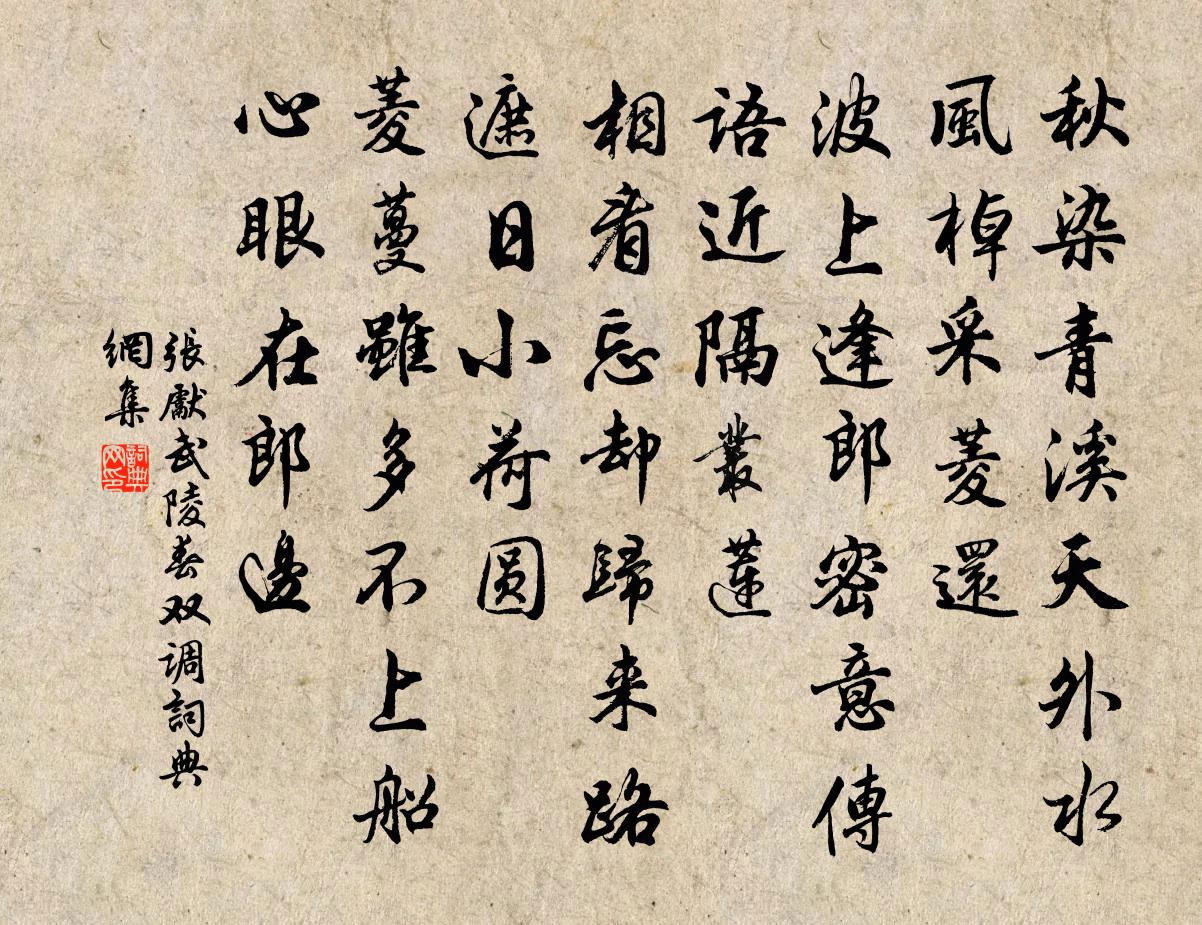 秋染青溪天外水
風棹采菱還
波上逢郎密意傳
語近隔叢蓮
相看忘却歸来路
遮日小荷圆
菱蔓雖多不上船
心眼在郎邊
張獻武陵春双调詞典
網集
詞典
网印